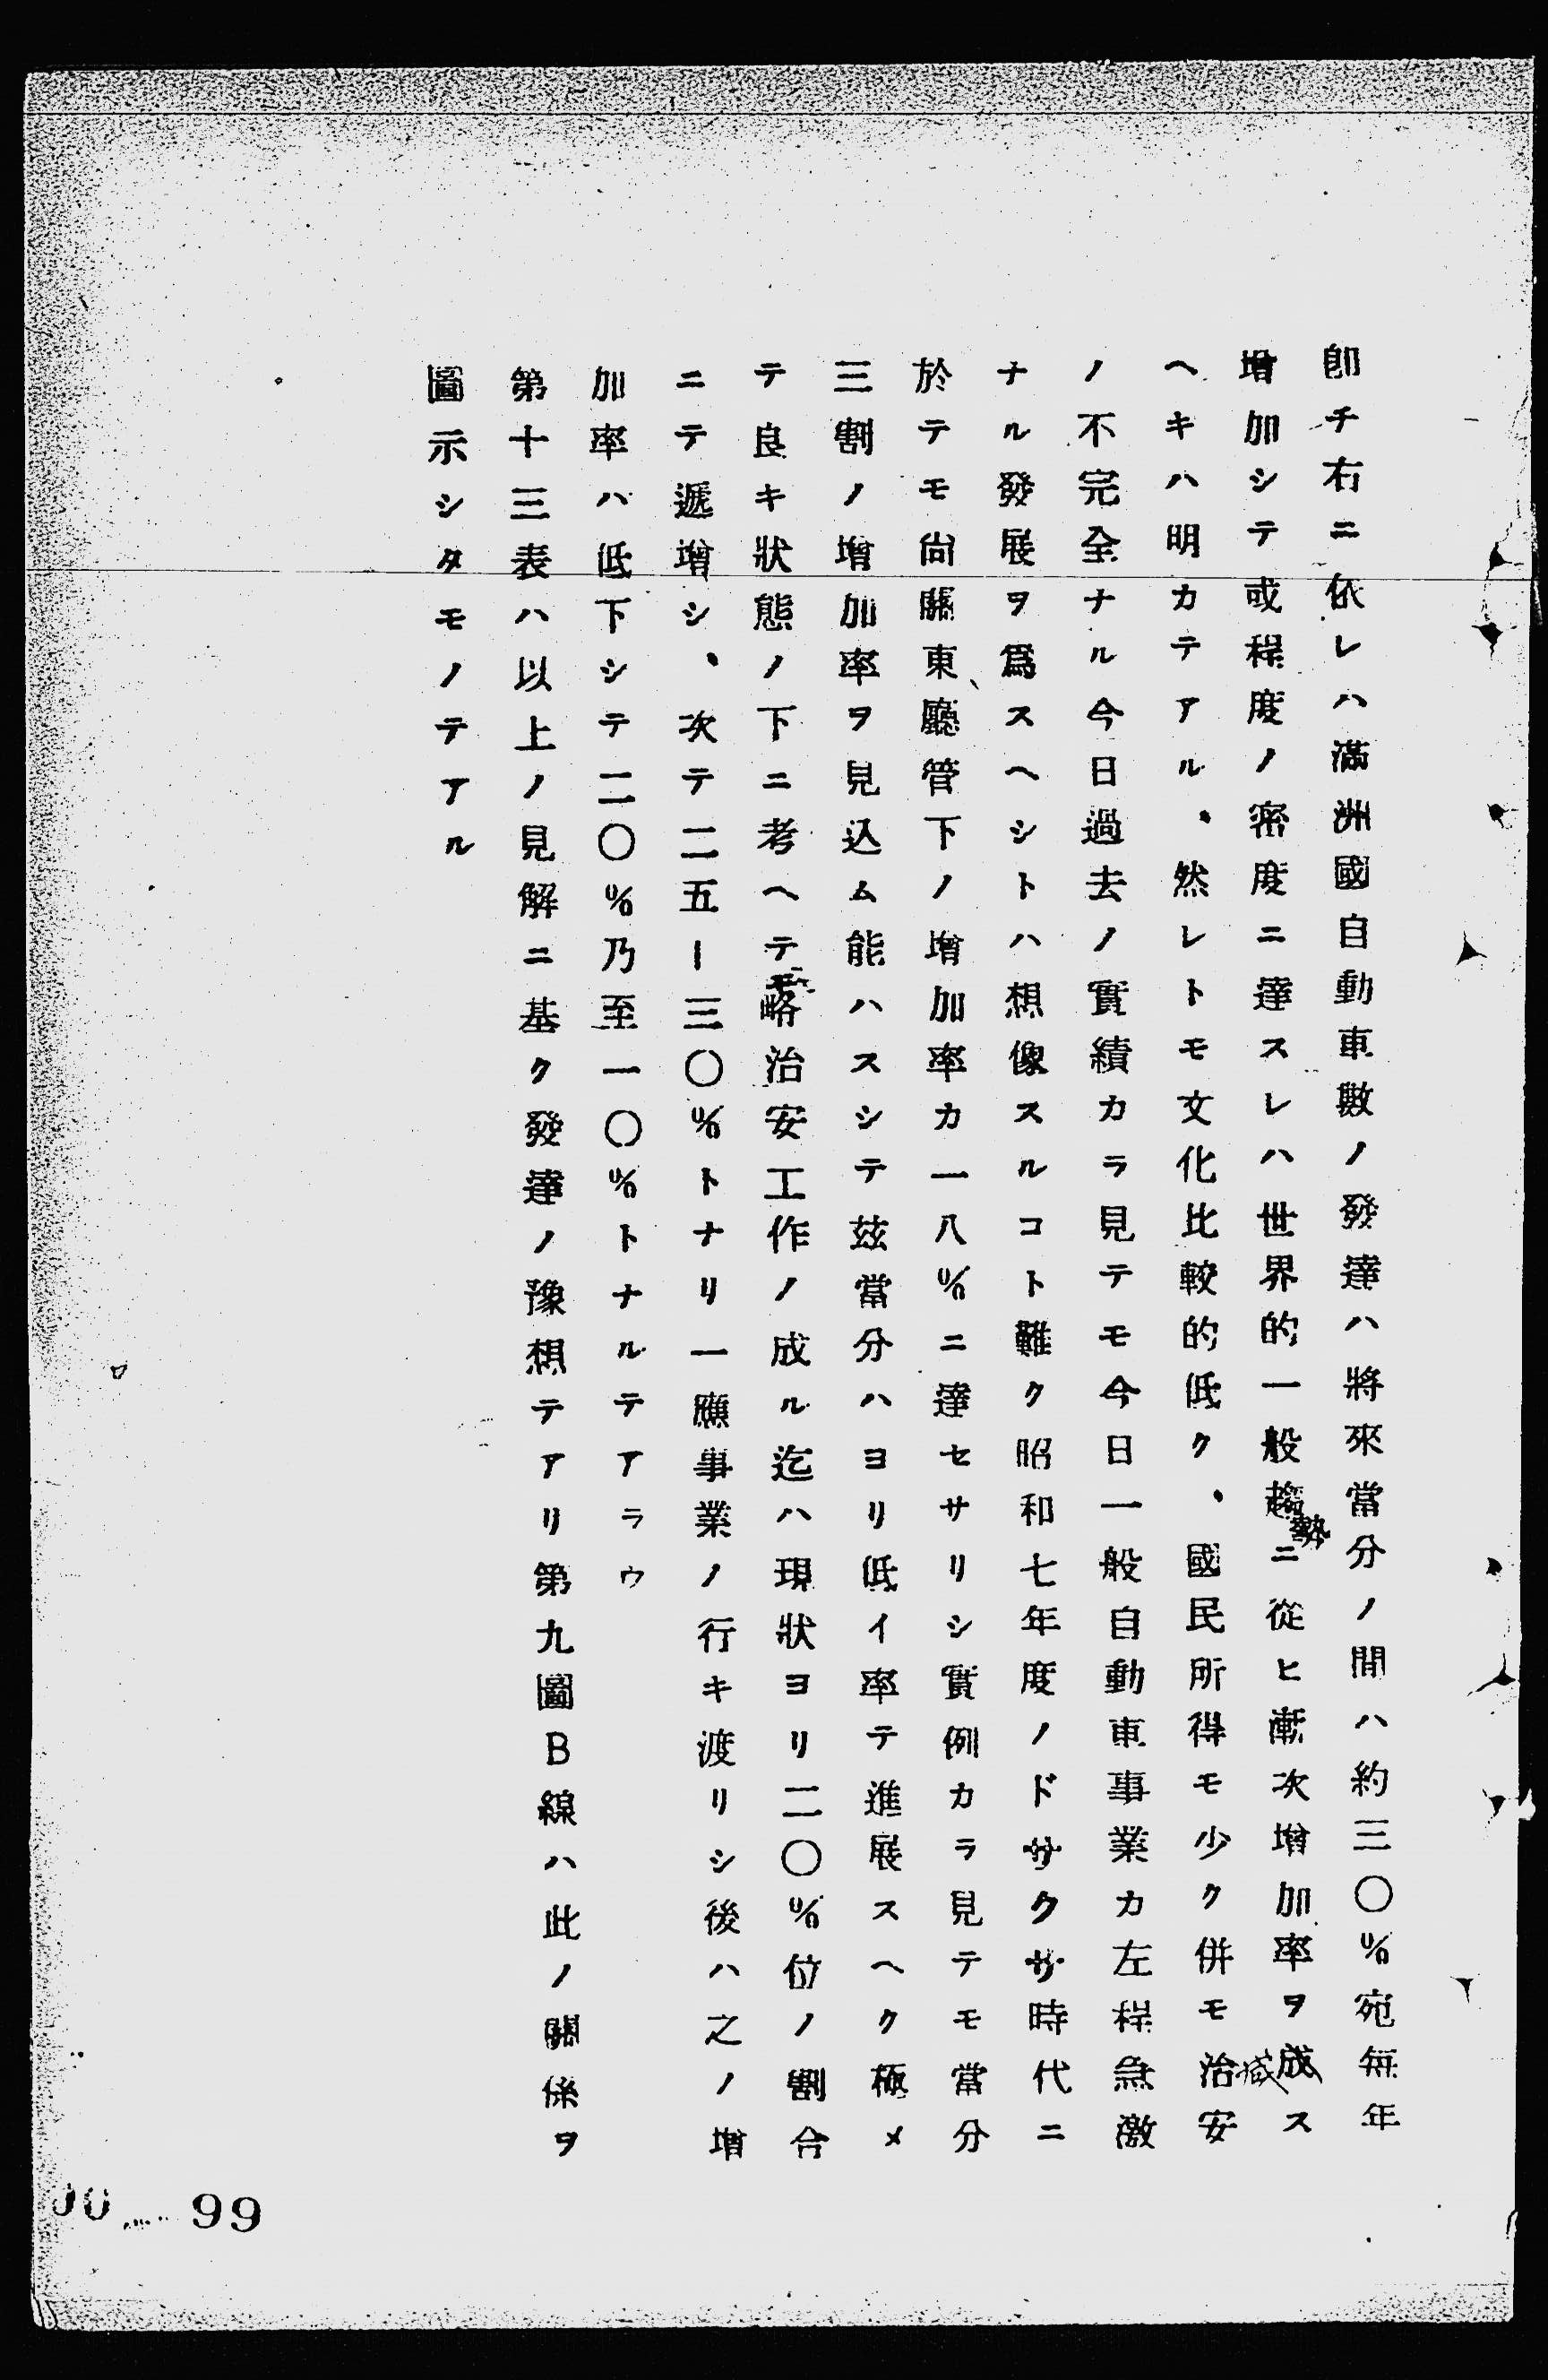 卽チ右ニ依レハ滿洲國自動車數ノ發達ハ將來當分ノ間ハ約三〇%宛每年
增加シテ或程度ノ密度ニ達スレハ世界的一般趨勢ニ從ヒ漸次增加率ヲ減成ス
ヘキハ明カテアル、然レトモ文化比較的低ク、國民所得モ少ク併モ治安
ノ不完全ナル今日過去ノ實績カラ見テモ今日一般自動車事業カ左程急激
ナル發展ヲ爲スヘシトハ想像スルコト難ク昭和七年度ノドサクサ時代ニ
於テモ尙關東廳管下ノ增加率カ一八%ニ達セサリシ實例カラ見テモ當分
三割ノ增加率ヲ見込ム能ハスシテ玆當分ハヨリ低イ率テ進展スヘク極メ
テ良キ狀態ノ下ニ考ヘテモ略治安工作ノ成ル迄ハ現狀ヨリ二〇%位ノ割合
ニテ遞增シ、次テ二五ー三〇%トナリ一應事業ノ行キ渡リシ後ハ之ノ增
加率ハ低下シテ二〇%乃至一〇%トナルテアラウ
第十三表ハ以上ノ見解ニ基ク發達ノ豫想テアリ第九圖B線ハ此ノ關係ヲ
圖示シタモノテアル
99